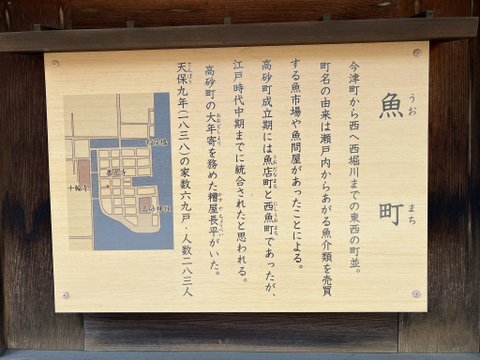 魚町
うおまち
今津町から西へ西堀川までの東西の町並。
町名の由来は瀬戸内からあがる魚介類を売買
する魚市場や魚問屋があったことによる。
高砂町成立期には魚店町と西魚町であったが、
江戸時代中期までに統合されたと思われる。
高砂町の大年寄を務めた糟屋長平がいた。
天保九年(一八三八)の家数六九戸・人数二八三人
十輪寺
高砂神社